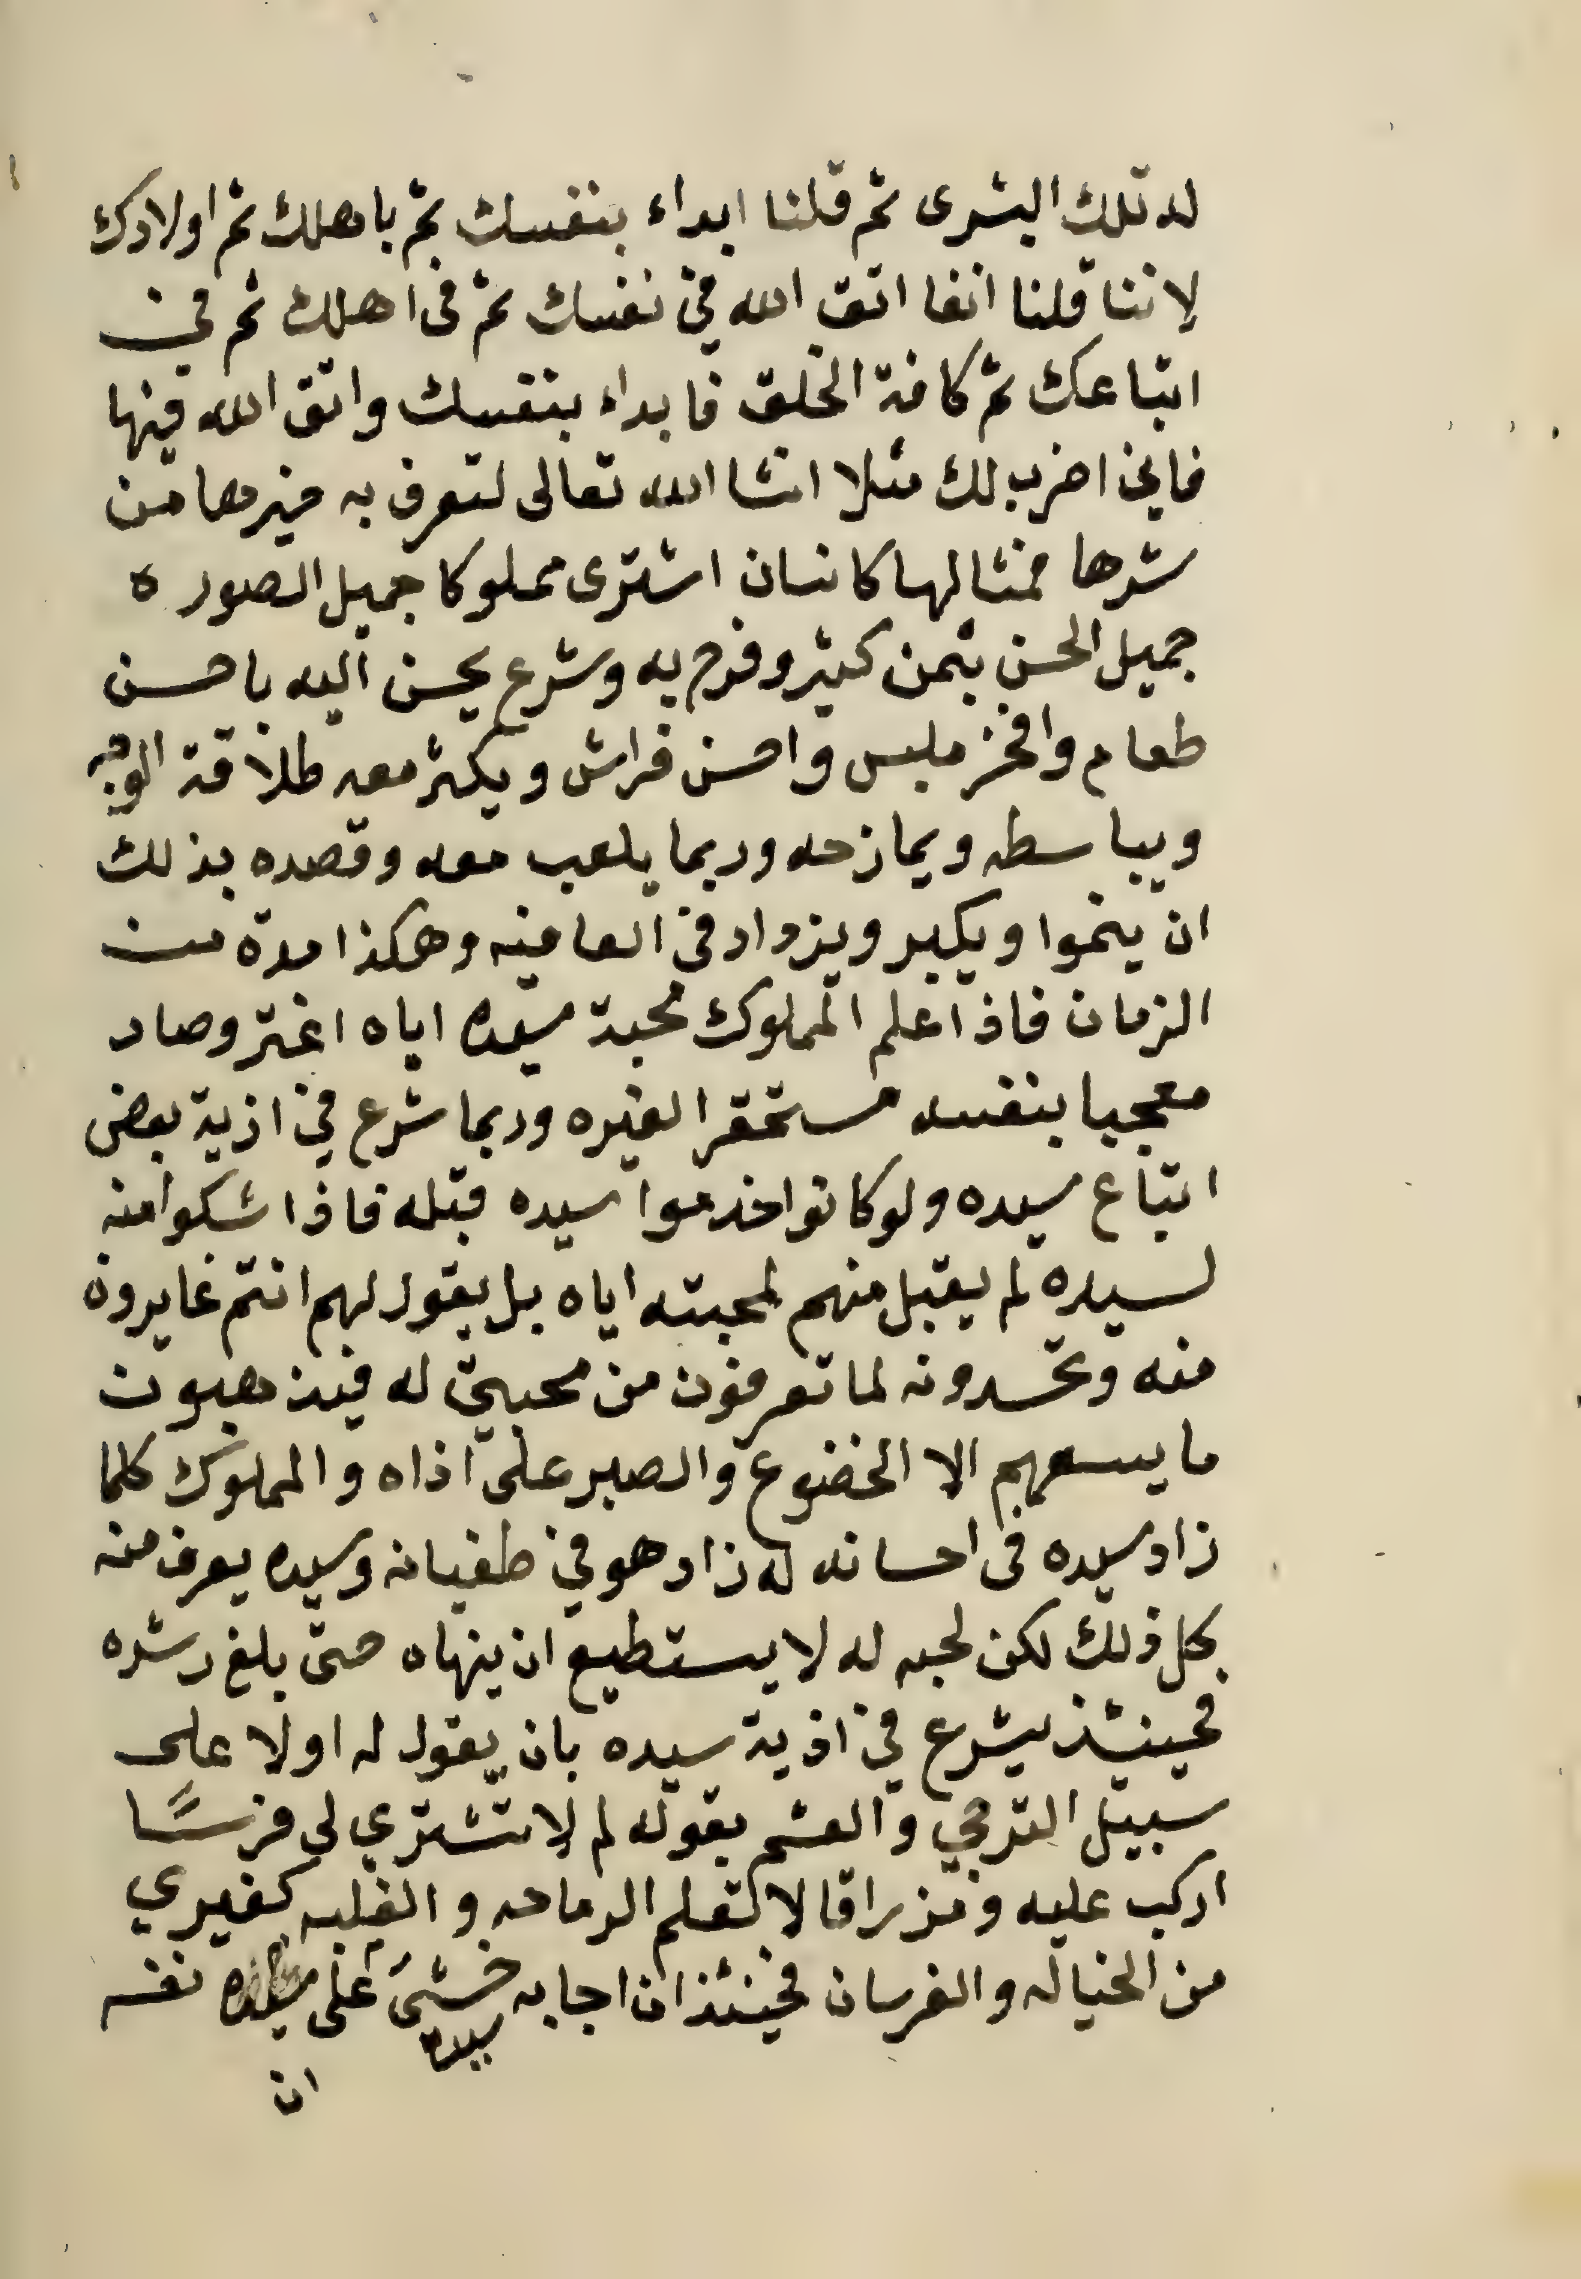 له تلك البشرى ثم قلنا ابداء بنفسك ثم باهلك ثم اولادك
لاننا قلنا انفا اتق الله في نفسك ثم في اهلك ثم في
اتباعك ثم كافة الخلق فابداء بنفسك واتق الله فيها
فاني اضرب لك مثلا انشا الله تعالى لتعرف به خيرها من
شرها فمثالها كانسان اشترى مملوكا جميل الصوره
جميل الحسن بثمن كثير وفرح به وشرع يحسن اليه باحسن
طعام وافخر ملبس واحسن فراش ويكثر معه طلاقة الوجه
ويباسطه ويمازحه وربما يلعب معه وقصده بذلك
ان ينموا ويكبر ويزداد في العافيه وهكذا مدة من
الزمان فاذا علم المملوك محبة سيده اياه اغتر وصار
معجبا بنفسه مستحقرا لغيره وربما شرع في اذية بعض
اتباع سيده ولو كانوا خدموا سيده قبله فاذا شكوا منه
لسيده لم يقبل منهم لمحبته اياه بل يقول لهم انتم غايرون
منه وتحسدونه لما تعرفون من محبتي له فيذهبون
ما يسعهم الا الخضوع والصبر على اذاه والمملوك كلما
زاد سيده في احسانه له زاد هو في طغيانه وسيده يعرف منه
كل ذلك لكن لحبه له لا يستطيع ان ينهاه حتى بلغ رشده
فحينئذ يشرع في اذية سيده بان يقول له اولا على
سبيل الترجي والعشم بقوله لم لا تشتري لي فرسًا
اركب عليه ومزراقا لاتعلم الرماحه والغلبه كغيري
من الخياله والفرسان فحينئذ ان اجابه خشي على نفسه
سيده
ان